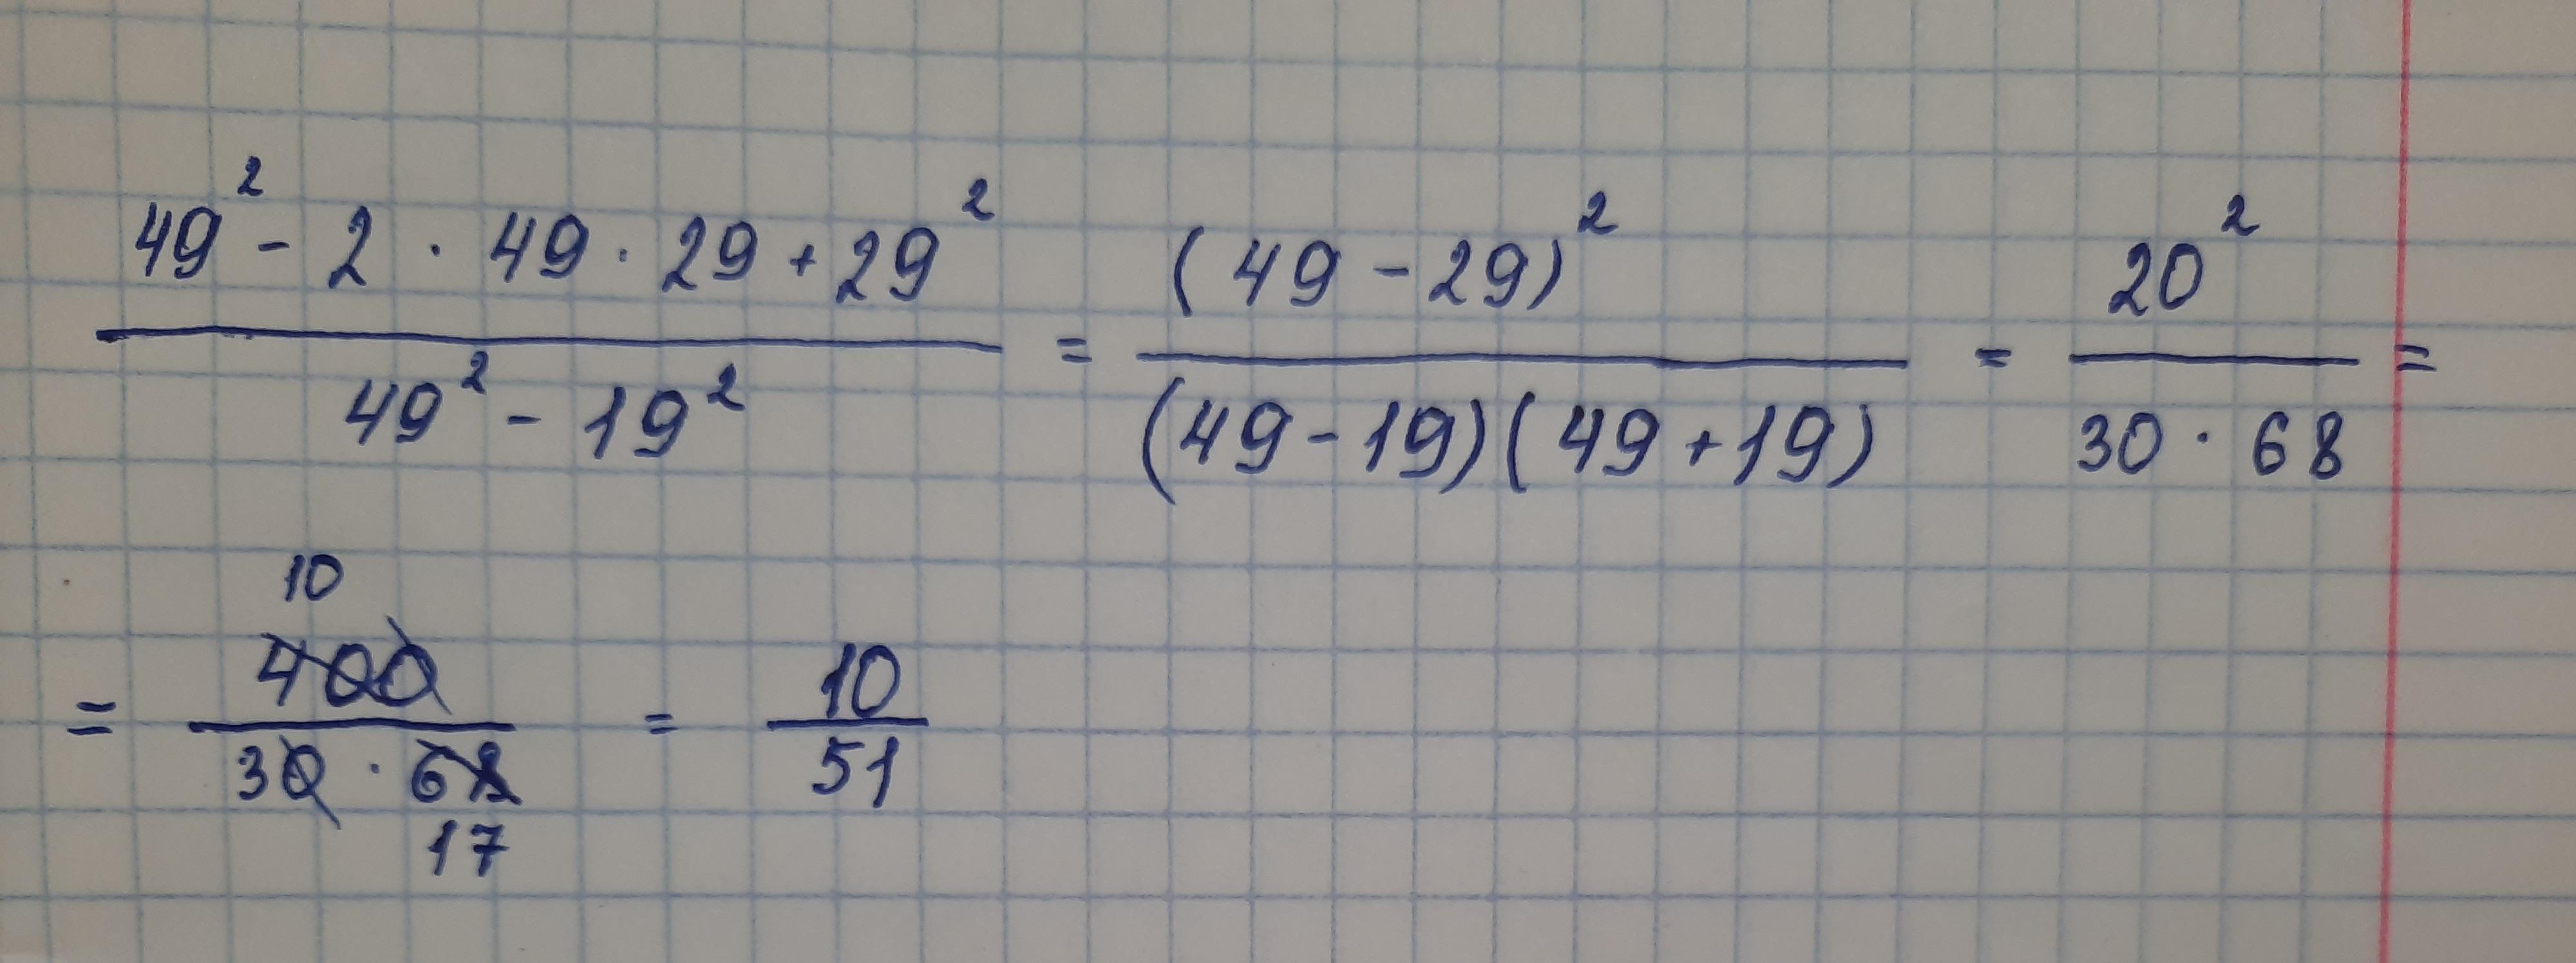 (49² - 2 · 49 · 29 + 29²) / (49² - 19²) = (49 - 29)² / ((49 - 19)(49 + 19)) = 20² / (30 · 68) =
10
= 400 / (30 · 68) = 10 / 51
17